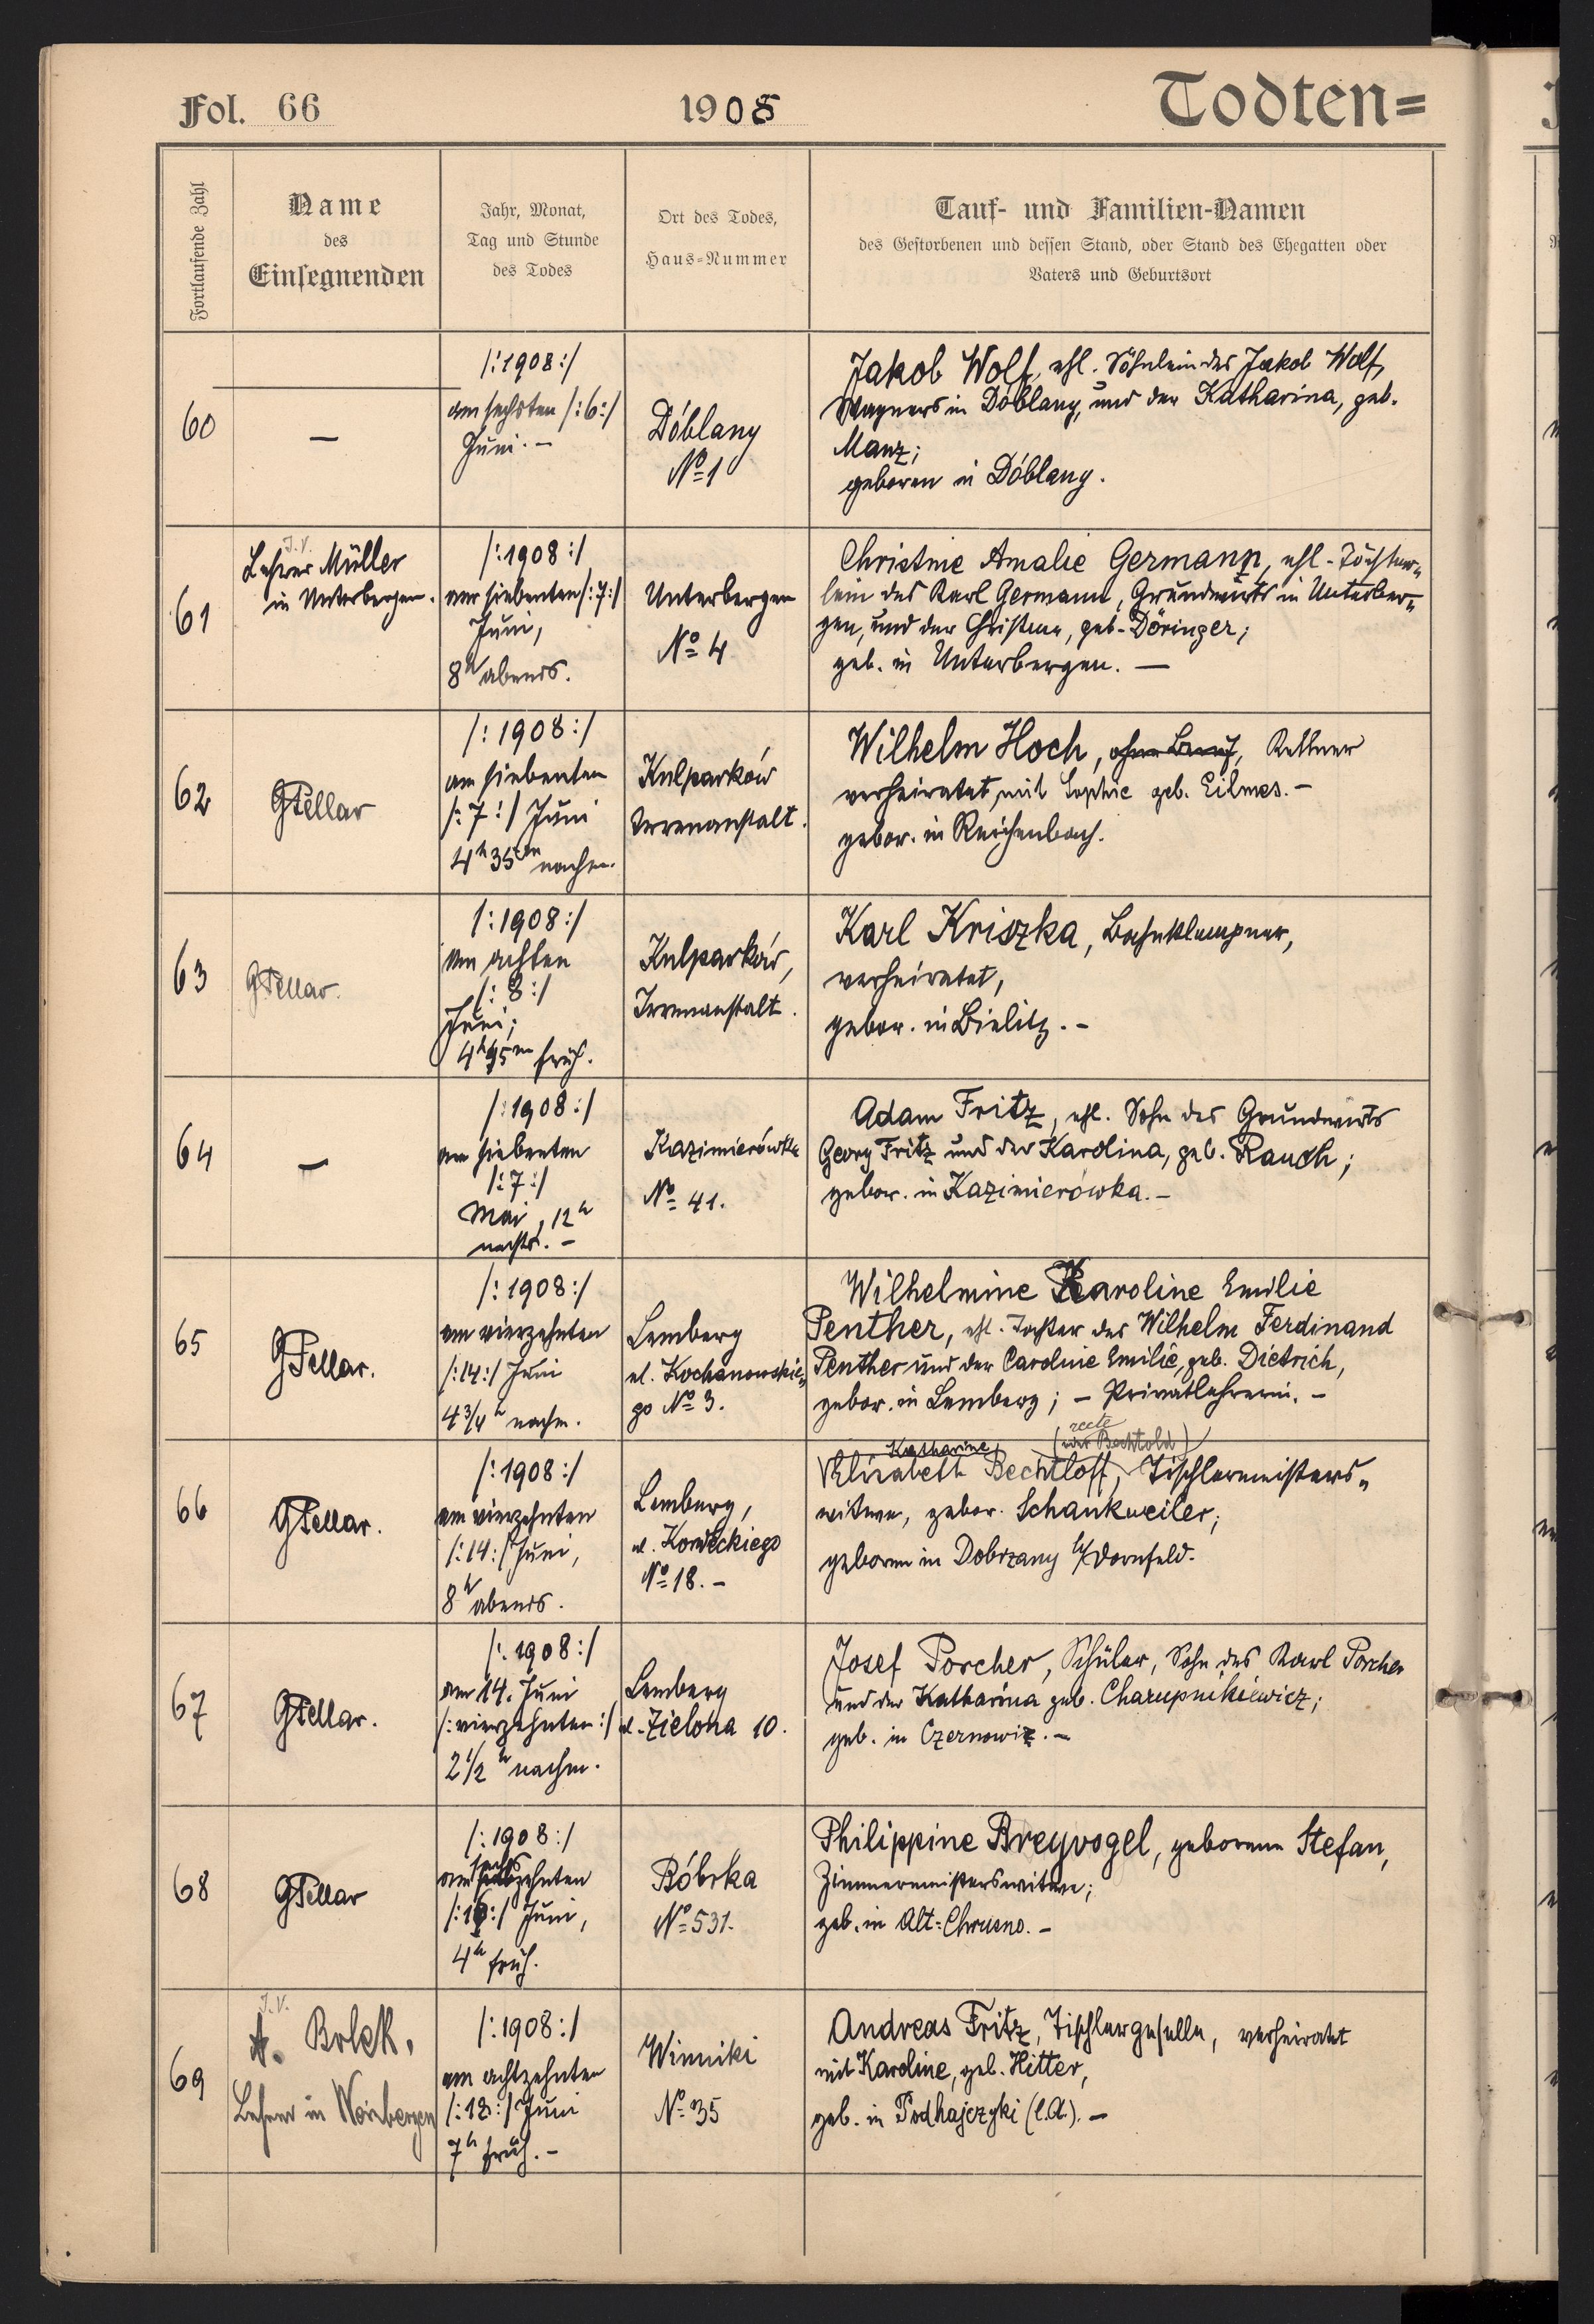 Fol. 66
1908
Todten=
Fortlaufende Zahl
Name
des
Einsegnenden
Jahr, Monat,
Tag und Stunde
des Todes
Ort des Todes,
Haus=Nummer
Tauf- und Familien-Namen
des Gestorbenen und dessen Stand, oder Stand des Ehegatten oder
Vaters und Geburtsort
60
—
/:1908:/
am sechsten /:6:/
Juni. –
Dóblany
No 1
Jakob Wolf, ehl. Söhnlein des Jakob Wolf,
Wagners in Dóblany, und der Katharina, geb.
Manz;
geboren in Dóblany.
61
J.V.
Lehrer Müller
in Unterbergen.
/:1908:/
am siebenten /:7:/
Juni,
8h abends.
Unterbergen
No 4
Christine Amalie Germann, ehl. Töchter=
lein des Karl Germann, Grundwirts in Unterber=
gen, und der Christine, geb. Döringer;
geb. in Unterbergen. —
62
GKellar
/:1908:/
am siebenten
/:7:/ Juni
4h 35m nachm.
Kulparków
Irrenanstalt.
Wilhelm Hoch, ohne Beruf, Kellner
verheiratet, mit Sophie geb. Eilmes. –
gebor. in Reichenbach.
63
GKellar.
/:1908:/
am achten
/:8:/
Juni;
4h 45m früh.
Kulparków,
Irrenanstalt.
Karl Kriszka, Bahnklempner,
verheiratet,
gebor. in Bielitz. –
64
—
/:1908:/
am siebenten
/:7:/
Mai, 12h
nachts. –
Kazimierówka
No 41.
Adam Fritz, ehl. Sohn des Grundwirts
Georg Fritz und der Karolina, geb. Rauch;
gebor. in Kazimierówka. –
65
GKellar.
/:1908:/
am vierzehnten
/:14:/ Juni
4 3/4 h nachm.
Lemberg
ul. Kochanowskie=
go No 3.
Wilhelmine Karoline Emilie
Penther, ehl. Tochter des Wilhelm Ferdinand
Penther und der Caroline Emilie, geb. Dietrich,
gebor. in Lemberg; – Privatlehrerin. –
66
GKellar.
/:1908:/
am vierzehnten
/:14:/ Juni,
8h abends.
Lemberg,
ul.
No 18. –
Katharine
recte
(oder Bechtold)
Elisabeth Bechtloff, Tischlermeisters=
witwe, gebor. Schankweiler;
geboren in Dobrzany b/Dornfeld.
67
GKellar.
/:1908:/
am 14. Juni
/:vierzehnten:/
2 1/2 h nachm.
Lemberg
ul. Zielona 10.
Josef Porcher, Schüler, Sohn des Karl Porcher
und der Katharina geb. Charupnikiewicz;
geb. in Czernowitz. –
68
GKellar
/:1908:/
sechs
am siebzehnten
/:16:/ Juni,
4h früh.
Bóbrka
No 531.
Philippine Breyvogel, geborene Stefan,
Zimmermeisterswitwe;
geb. in Alt=Chrusno. –
69
J.V.
A. Bolek,
Lehrer in Weinbergen
/:1908:/
am achtzehnten
/:18:/ Juni
7h früh. –
Winniki
No 35
Andreas Fritz, Tischlergeselle, verheiratet
mit Karoline, geb. Hitter,
geb. in Podhajczyki (l.A.). –